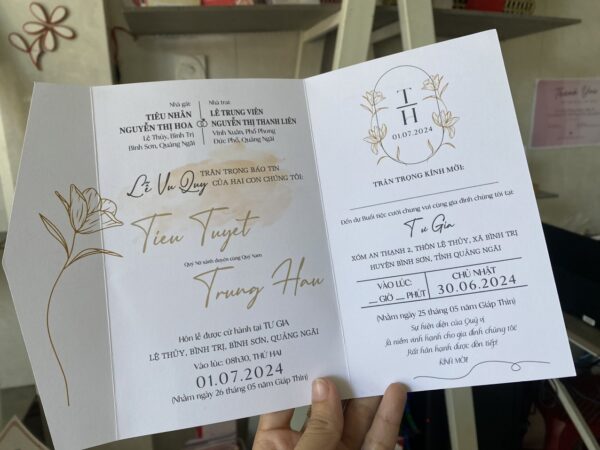 Nhà gái
TIÊU NHÂN
NGUYỄN THỊ HOA
Lệ Thủy, Bình Trị
Bình Sơn, Quảng Ngãi
Nhà trai
LÊ TRUNG VIÊN
NGUYỄN THỊ THANH LIÊN
Vĩnh Xuân, Phổ Phong
Đức Phổ, Quảng Ngãi
Lễ Vu Quy TRÂN TRỌNG BÁO TIN
CỦA HAI CON CHÚNG TÔI:
Tieu Tuyet
Quý Nữ sánh duyên cùng Quý Nam
Trung Hau
Hôn lễ được cử hành tại TƯ GIA
LỆ THỦY, BÌNH TRỊ, BÌNH SƠN, QUẢNG NGÃI
Vào lúc: 08h30, THỨ HAI
01.07.2024
(Nhằm ngày 26 tháng 05 năm Giáp Thìn)
T
H
01.07.2024
TRÂN TRỌNG KÍNH MỜI:
Đến dự Buổi tiệc cưới chung vui cùng gia đình chúng tôi tại:
Tư Gia
XÓM AN THẠNH 2, THÔN LỆ THỦY, XÃ BÌNH TRỊ
HUYỆN BÌNH SƠN, TỈNH QUẢNG NGÃI
VÀO LÚC:
__ GIỜ __ PHÚT
CHỦ NHẬT
30.06.2024
(Nhằm ngày 25 tháng 05 năm Giáp Thìn)
Sự hiện diện của Quý vị
là niềm vinh hạnh cho gia đình chúng tôi
Rất hân hạnh được đón tiếp!
KÍNH MỜI
Thank You